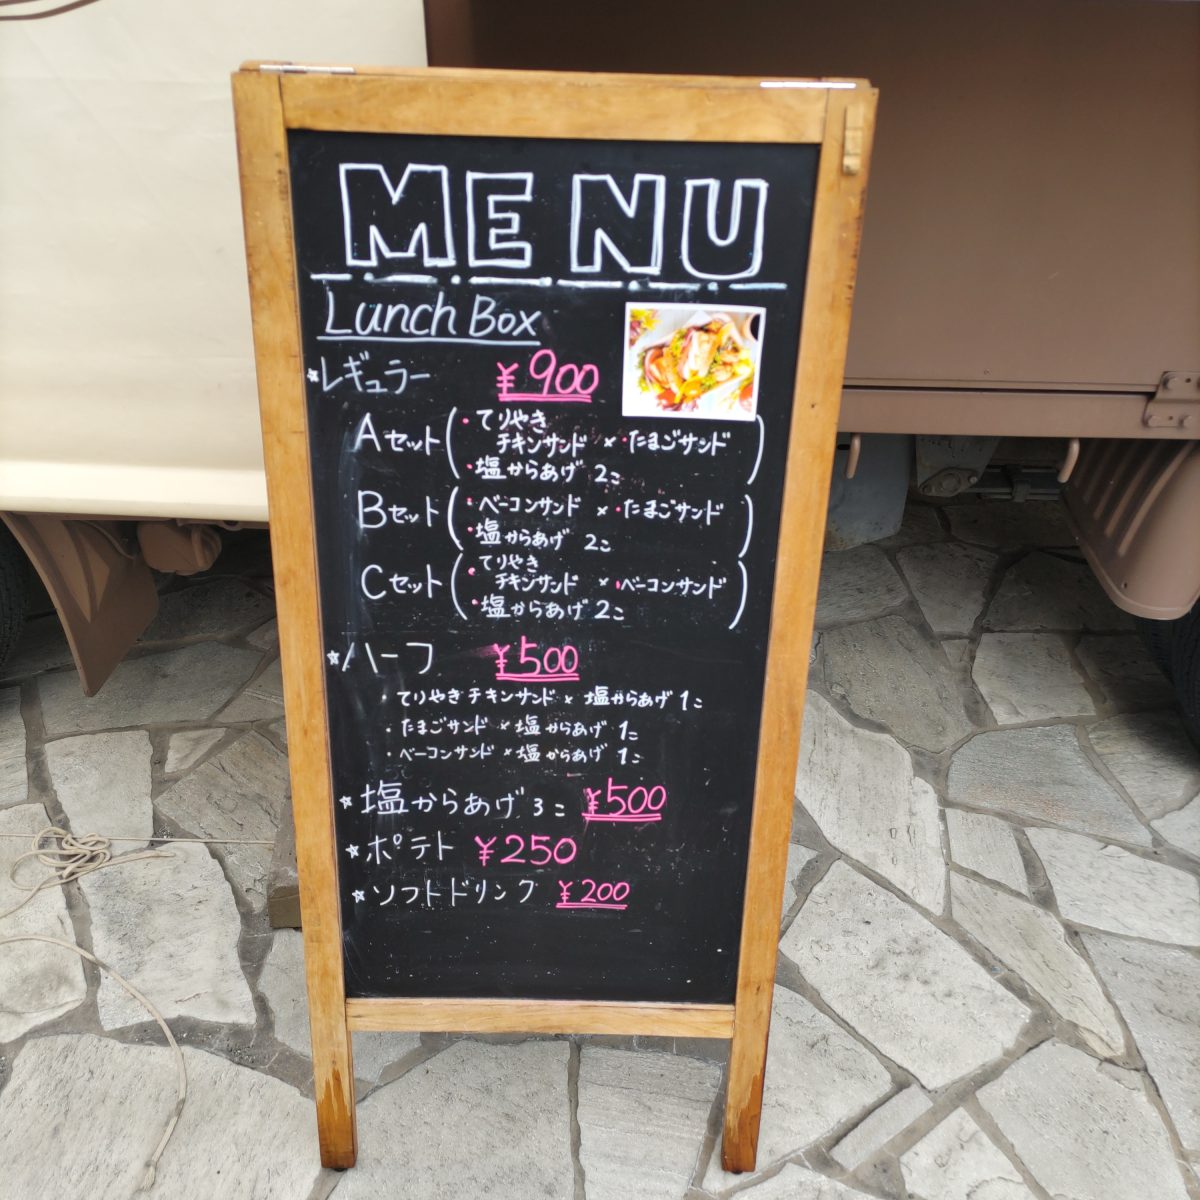 MENU
Lunch Box
☆レギュラー ¥900
Aセット(・てりやき
チキンサンド × ・たまごサンド
・塩からあげ 2こ)
Bセット(・ベーコンサンド × ・たまごサンド
・塩からあげ 2こ)
Cセット(・てりやき
チキンサンド × ・ベーコンサンド
・塩からあげ 2こ)
☆ハーフ ¥500
・てりやきチキンサンド × 塩からあげ 1こ
・たまごサンド × 塩からあげ 1こ
・ベーコンサンド × 塩からあげ 1こ
☆塩からあげ 3こ ¥500
☆ポテト ¥250
☆ソフトドリンク ¥200